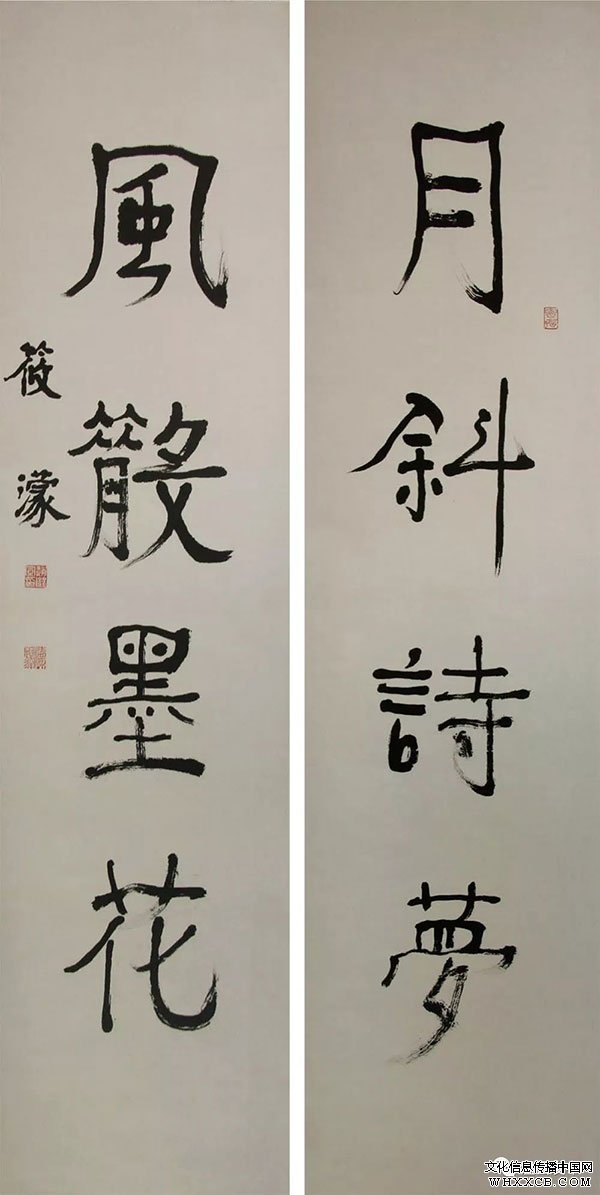 月斜詩夢
風散墨花
筱濛
文化信息传播中国网
WHXXCB.COM